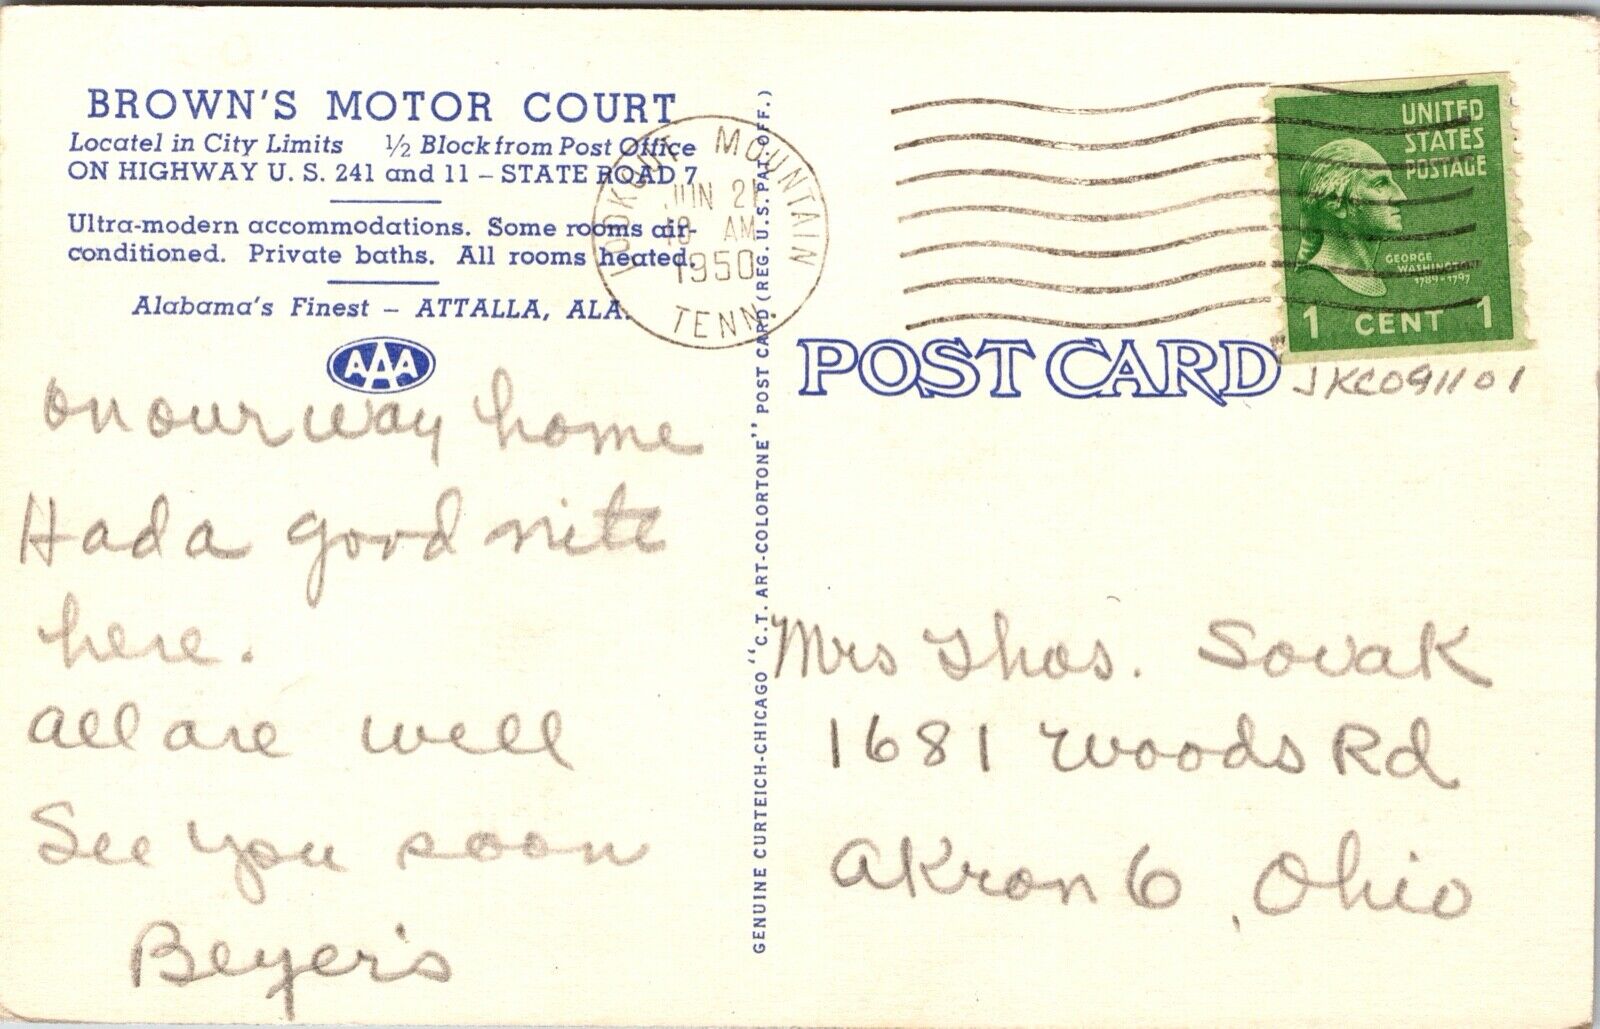 BROWN'S MOTOR COURT
Locatel in City Limits ½ Block from Post Office
ON HIGHWAY U. S. 241 and 11 – STATE ROAD 7
Ultra-modern accommodations. Some rooms air-
conditioned. Private baths. All rooms heated.
Alabama's Finest – ATTALLA, ALA.
AAA
on our way home
Had a good nite
here.
all are well
See you soon
Beyer's
GENUINE CURTEICH-CHICAGO "C.T. ART-COLORTONE" POST CARD (REG. U.S. PAT. OFF.)
LOOKOUT MOUNTAIN
JUN 21
10 AM
1950
TENN.
UNITED
STATES
POSTAGE
GEORGE
WASHINGTON
1789-1797
1 CENT 1
POST CARD
JKC091101
Mrs Thos. Sovak
1681 Woods Rd
Akron 6, Ohio